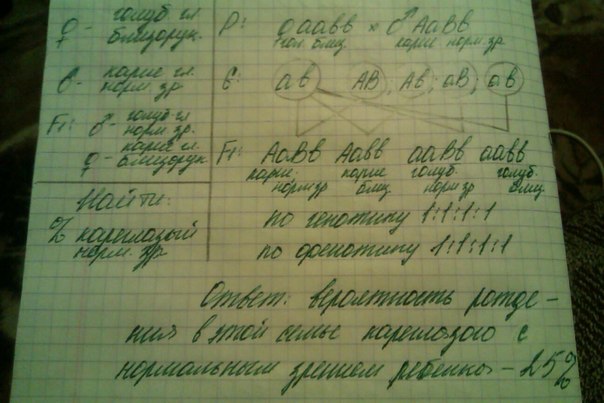 ♀ - голуб гл.
близорук.
♂ - карие гл.
норм. зр.
F₁: ♂ - голуб гл
норм. зр.
карие гл.
♀ - близорук.
Найти:
% кареглазый
норм. зр.
P: ♀ аавв × ♂ АаВв
гол. близ карие норм. зр.
G: ав АВ, Ав, аВ, ав
F₁: АаВв Аавв ааВв аавв
карие. карие голуб. голуб.
норм зр близ. норм зр близ
по генотипу 1:1:1:1
по фенотипу 1:1:1:1
Ответ: вероятность рожде-
ния в этой семье кареглазого с
нормальным зрением ребенка - 25%